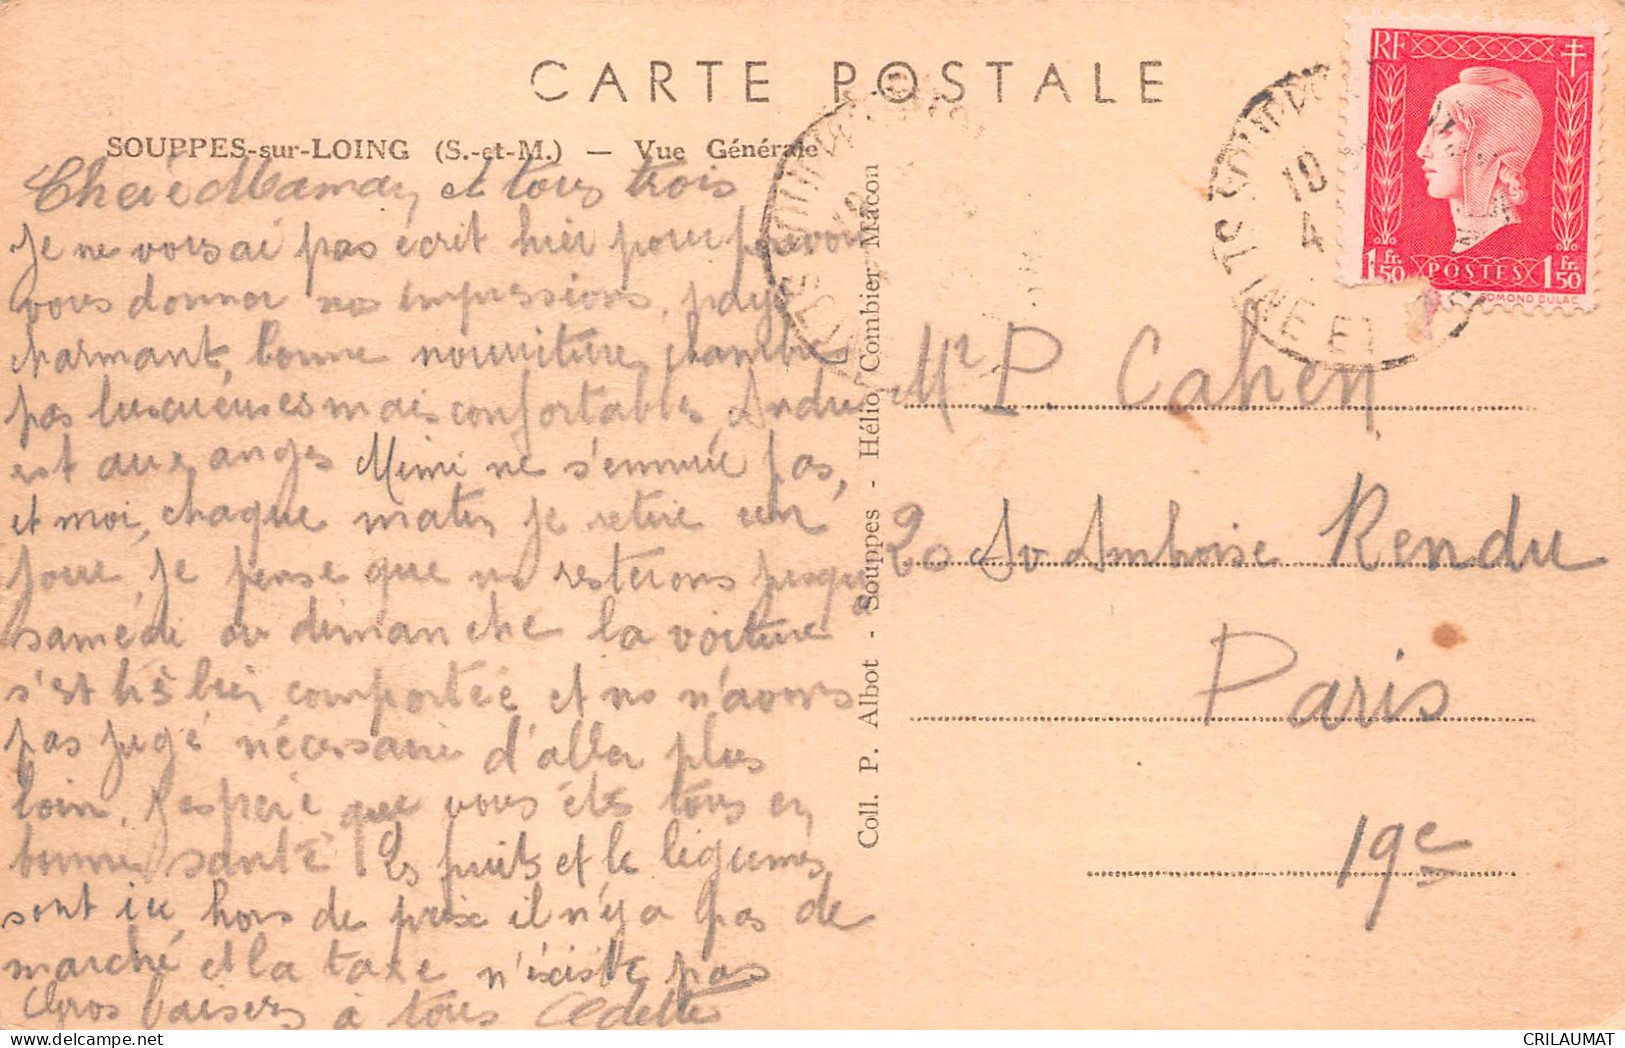 CARTE POSTALE
SOUPPES-sur-LOING (S.-et-M.) — Vue Générale
Chère Maman, et tous trois
Je ne vous ai pas écrit hier pour pouvoir
vous donner nos impressions, pays
charmant, bonne nourriture, chambres
pas luxueuses mais confortables, André
est aux anges Mimi ne s'ennuie pas,
et moi, chaque matin, je retire un
jour, je pense que ns resterons jusqu'à
samedi ou dimanche la voiture
s'est très bien comportée et ns n'avons
pas jugé nécessaire d'aller plus
loin. J'espère que vous êtes tous en
bonne santé ! Les fruits et le légumes
sont ici hors de prix il n'y a pas de
marché et la taxe n'existe pas
Gros baisers à tous Odette
Coll. P. Albot - Souppes - Hélio, Combier Macon
RF
1 Fr. 50 POSTES 1 Fr. 50
EDMOND DULAC
SOUPPES
18
4
NE ET
Mr P. Cahen
20 Av Ambroise Rendu
Paris
19e
CRILAUMAT